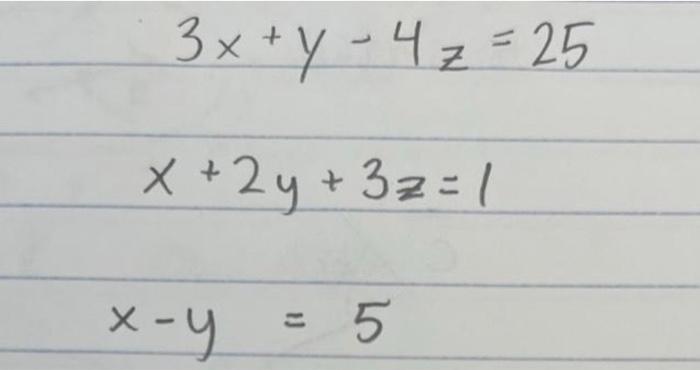 3x + y - 4z = 25
x + 2y + 3z = 1
x - y = 5